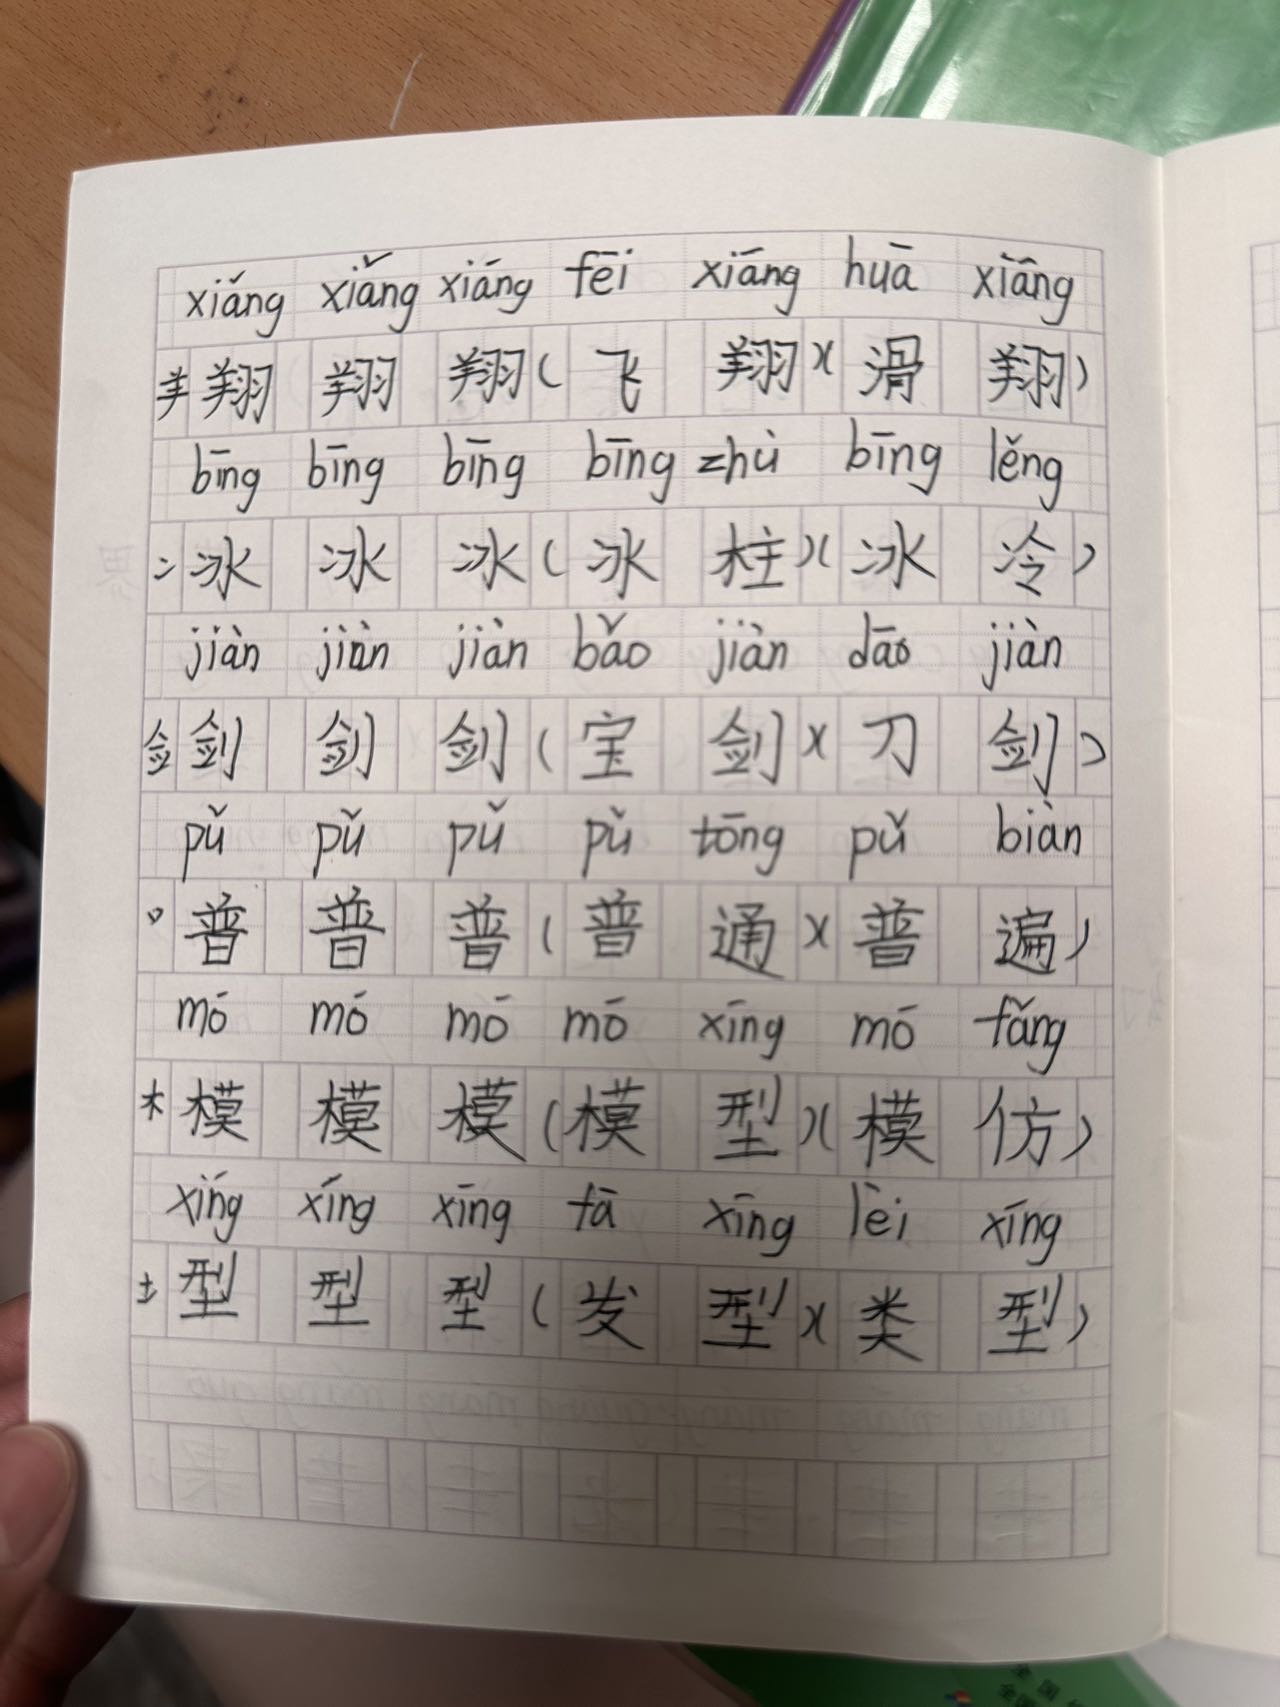 xiáng xiǎng xiáng fēi xiáng huā xiāng
羊翔 翔 翔(飞 翔)(滑 翔)
bīng bīng bīng bīng zhù bīng lěng
冫冰 冰 冰(冰 柱)(冰 冷)
jiàn jiàn jiàn bǎo jiàn dāo jiàn
佥剑 剑 剑(宝 剑)(刀 剑)
pǔ pǔ pǔ pǔ tōng pǔ biàn
日普 普 普(普 通)(普 遍)
mó mó mō mō xīng mō fǎng
木模 模 模(模 型)(模 仿)
xíng xíng xīng fā xīng lèi xíng
土型 型 型(发 型)(类 型)
全国